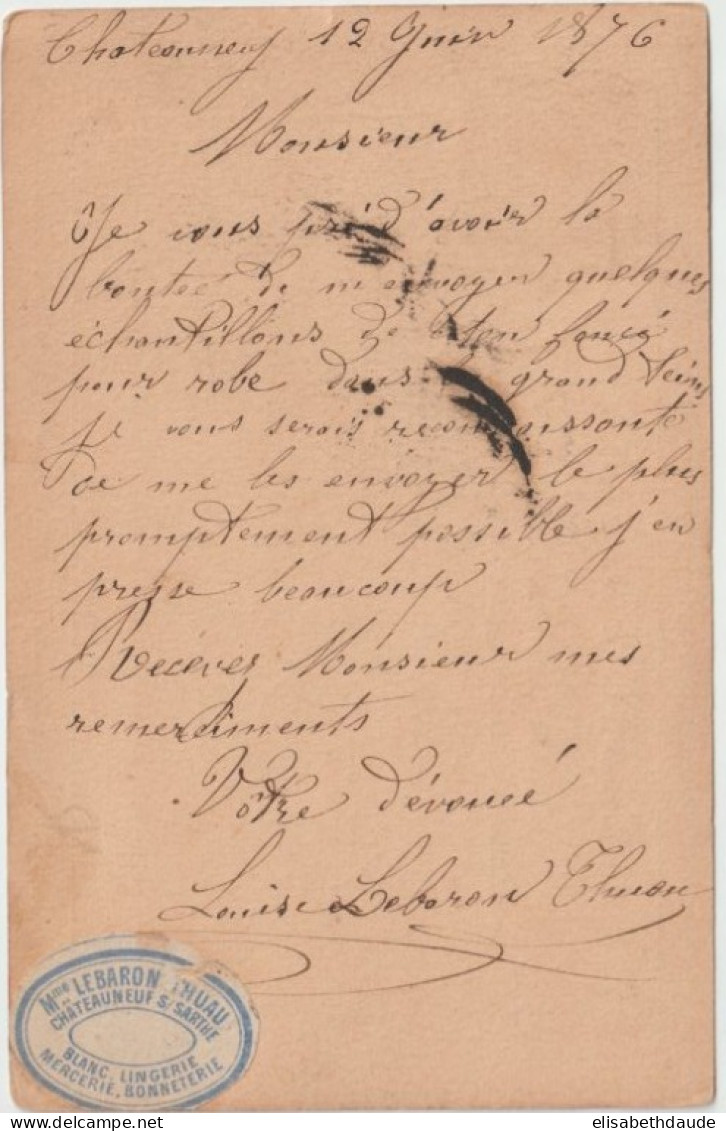 Chateauneuf 12 Juin 1876
Monsieur
Je vous prie d'avoir la
bontée de m'envoyer quelques
échantillons de foncé
pour robe dans grand
je vous serais reconnaissante
de me les envoyer le plus
promptement possible j'en
presse beaucoup
Recevez Monsieur mes
remerciments
Votre dévouée
Louise Lebaron Thuau
Mme LEBARON THUAU
CHATEAUNEUF S/SARTHE
BLANC, LINGERIE
MERCERIE, BONNETERIE
elisabethdaude